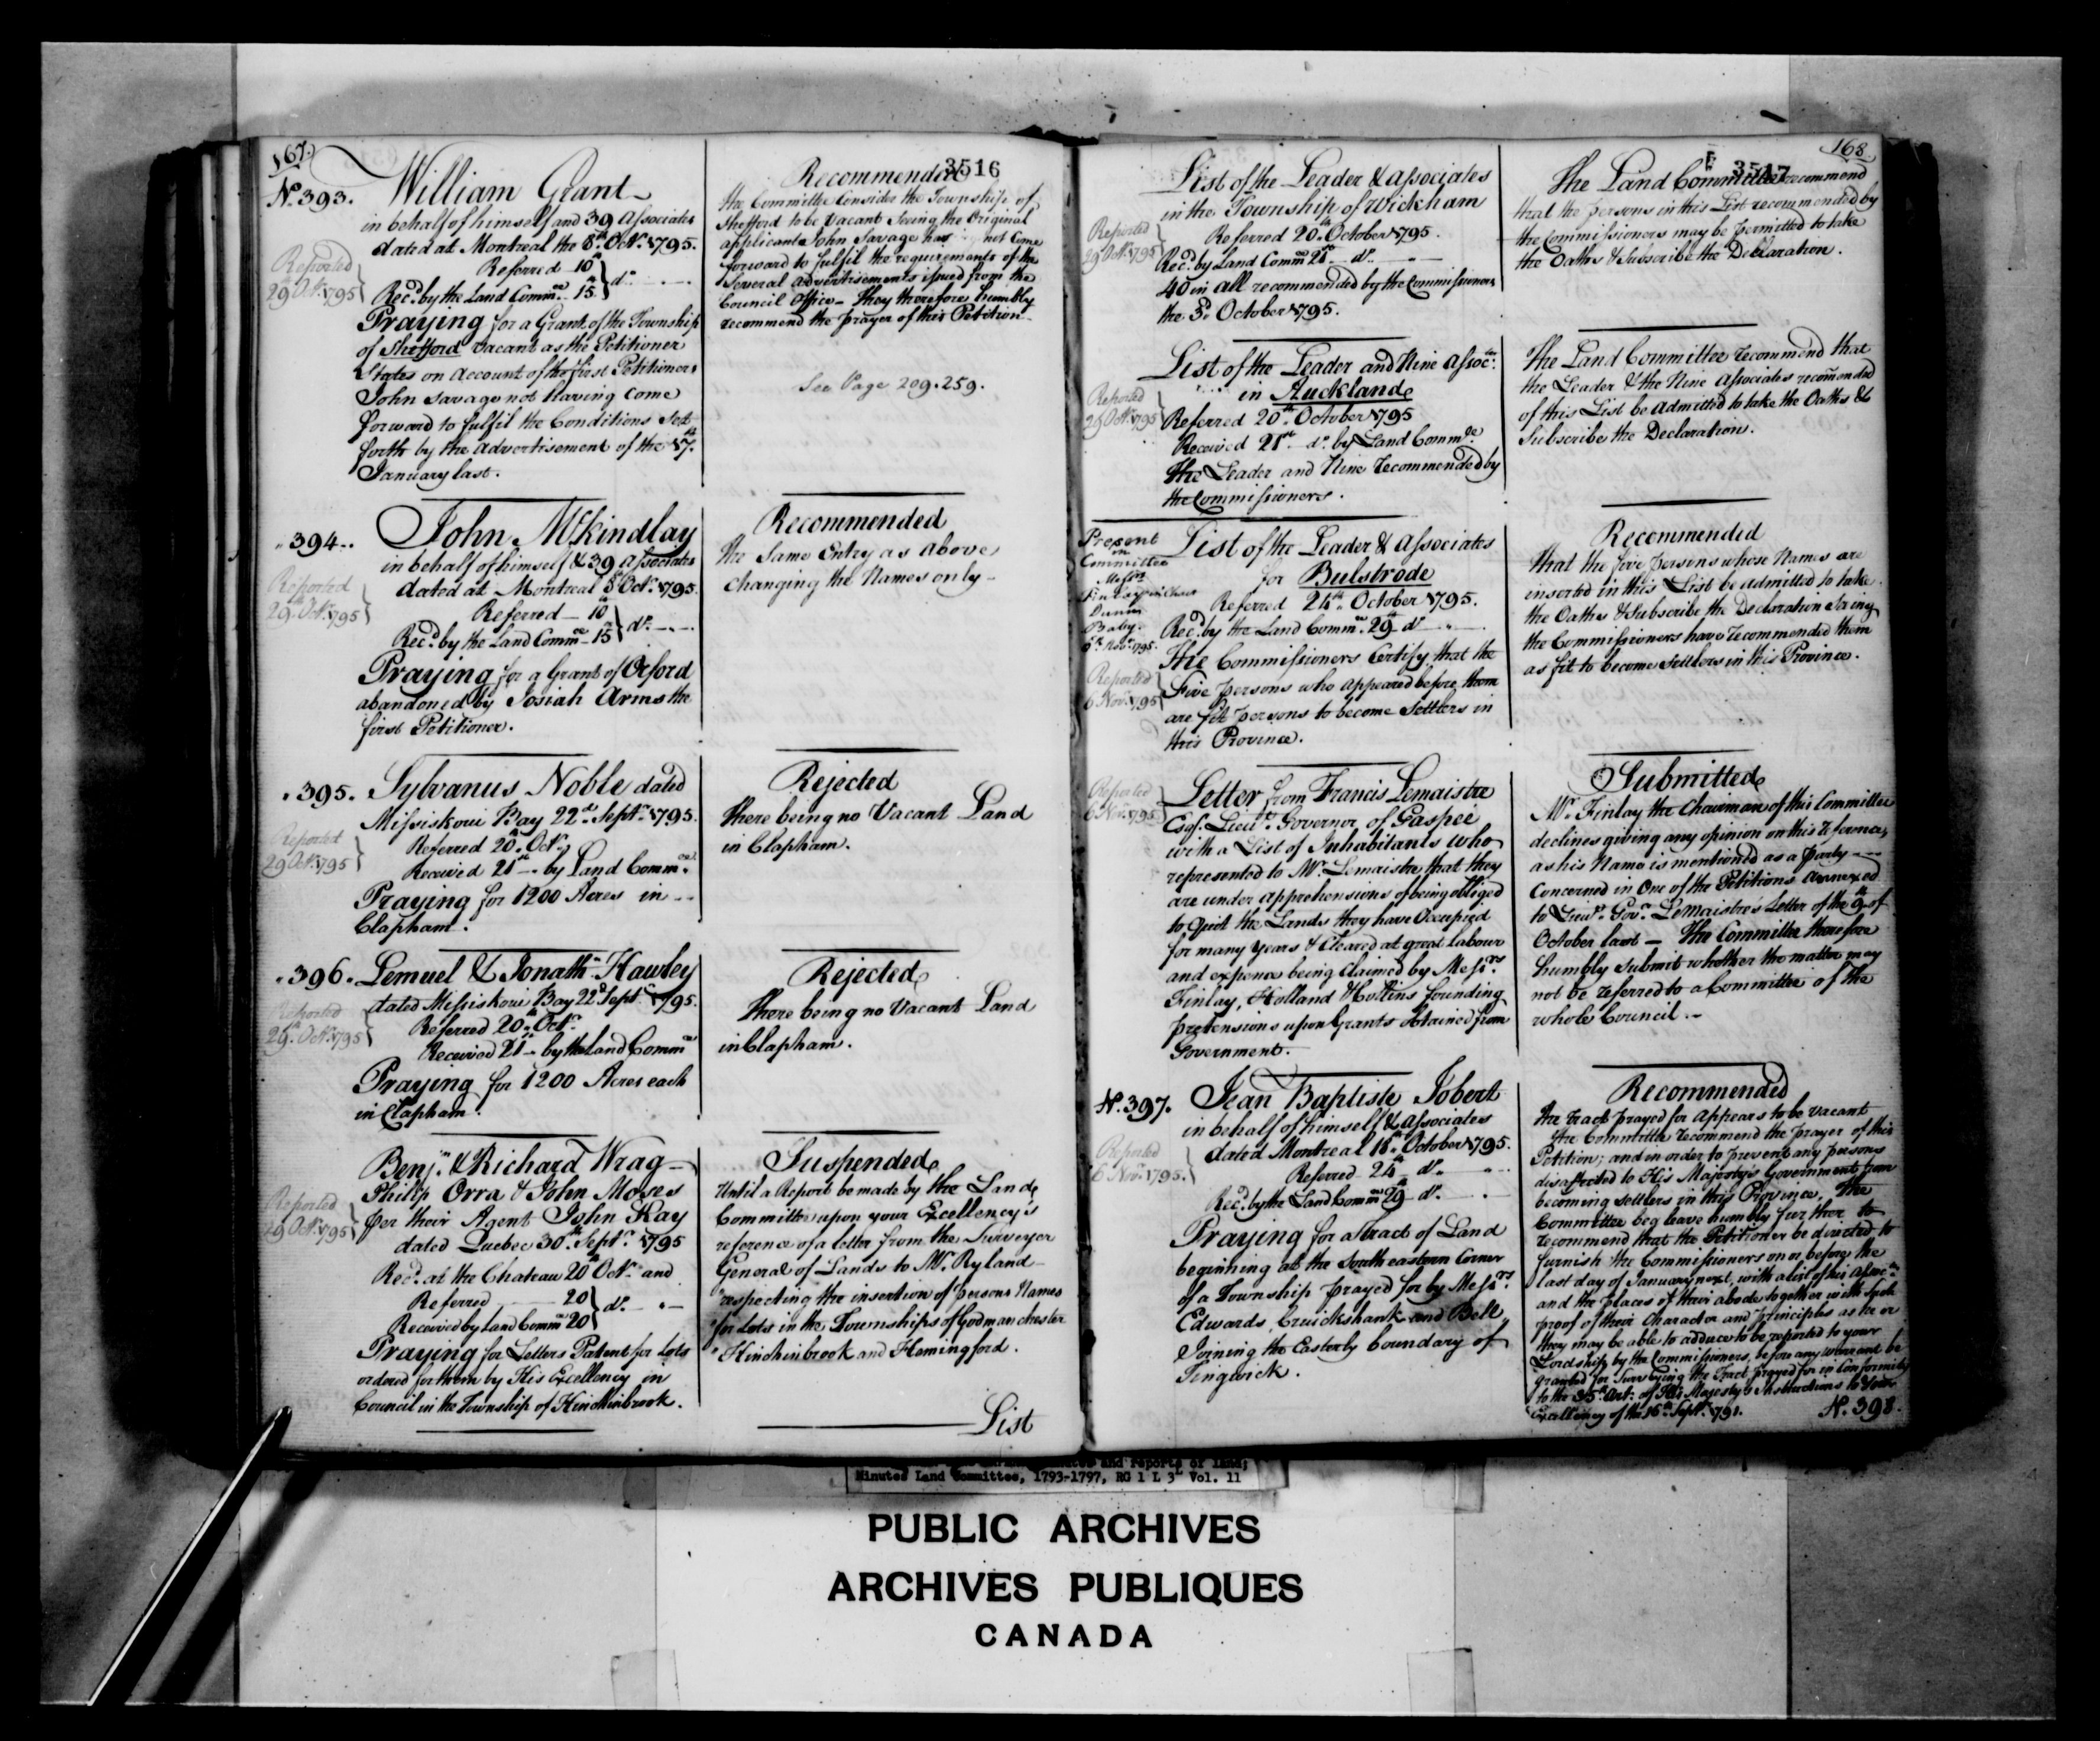 167.
3516
No. 393.
William Grant
in behalf of himself and 39 Associates
dated at Montreal the 8th Octr. 1795.
Reported
29th Octr. 1795
Referred — 10th
Recd. by the Land Commee — 15th } do.
Praying for a Grant of the Township
of Shefford vacant as the Petitioner
States on account of the first Petitioner
John Savage not having come
forward to fulfil the Conditions Set
forth by the Advertisement of the 17th
January last.
Recommended
the Committee Consider the Township of
Shefford to be Vacant Seeing the Original
applicant John Savage has not Come
forward to fulfil the requirements of the
Several Advertisements issued from the
Council Office — They therefore humbly
recommend the prayer of this Petition —
See Page 209. 259.
" 394.
John McKindlay
in behalf of himself & 39 Associates
dated at Montreal 8th Octr. 1795.
Reported
29th Octr. 1795
Referred — 10th
Recd. by the Land Commee — 15th } do.
Praying for a Grant of Orford
abandoned by Josiah Arms the
first Petitioner.
Recommended
the Same Entry as above
changing the Names only —
" 395.
Sylvanus Noble dated
Missiskoui Bay 22d. Septr. 1795.
Reported
29 Octr. 1795
Referred 20th Octr.
Received 21st — by Land Commee
Praying for 1200 Acres in
Clapham.
Rejected
there being no Vacant Land
in Clapham.
" 396.
Lemuel & Jonathn. Hawley
dated Missiskoui Bay 22d Septr. 1795.
Reported
29th Octr. 1795
Referred 20th Octr.
Received 21st — by the Land Commee
Praying for 1200 Acres each
in Clapham.
Rejected
there being no Vacant Land
in Clapham.
Benjn. & Richard Wrag —
Philip Orra & John Moses
per their Agent John Kay
dated Quebec 30th Septr. 1795
Reported
29 Octr. 1795
Recd. at the Chateau 20th Octr. and
Referred — 20
Received by Land Commee 20 } do.
Praying for Letters Patent for Lots
ordered for them by His Excellency in
Council in the Township of Hinchinbrook.
Suspended
Until a Report be made by the Land
Committee upon your Excellency's
reference of a letter from the Surveyor
General of Lands to Mr. Ryland
"respecting the insertion of persons Names
"for Lots in the Townships of Godmanchester
"Hinchinbrook and Hemingford.
List
168
3517
List of the Leader & Associates
in the Township of Wickham
Reported
29 Octr. 1795
Referred 20th October 1795.
Recd. by Land Commee 21st — do.
40 in all recommended by the Commissioners
the 3d. October 1795.
The Land Committee recommend
that the persons in this List recommended by
the Commissioners may be permitted to take
the Oaths & Subscribe the Declaration.
List of the Leader and Nine Associates
in Auckland
Reported
29 Octr. 1795
Referred 20th October 1795
Received 21st do. by Land Commee
The Leader and Nine recommended by
the Commissioners.
The Land Committee recommend that
the Leader & the Nine Associates recommended
of this List be admitted to take the Oaths &
Subscribe the Declaration.
Present
in
Committee
Messrs
Finlay
Dunn
Baby
Novr. 1795.
List of the Leader & Associates
for Bulstrode
Referred 24th October 1795.
Recd. by the Land Commee 29 do.
Reported
6 Novr. 1795
The Commissioners Certify that the
Five persons who appeared before them
are fit persons to become Settlers in
this Province.
Recommended
that the five persons whose Names are
inserted in this List be admitted to take
the Oaths & Subscribe the Declaration Seeing
the Commissioners have recommended them
as fit to become Settlers in this Province.
Reported
6 Novr. 1795
Letter from Francis Lemaistre
Esqr. Lieut. Governor of Gaspée
with a List of Inhabitants who
represented to Mr. Lemaistre that they
are under apprehensions of being obliged
to Quit the Lands they have Occupied
for many Years & Cleared at great labour
and expence being claimed by Messrs.
Finlay, Holland & Collins founding
pretensions upon Grants obtained from
Government.
Submitted
Mr. Finlay the Chairman of this Committee
declines giving any opinion on this reference,
as his Name is mentioned as a party
Concerned in One of the Petitions annexed
to Lieut. Govr. Lemaistre's Letter of the 9th of
October last — The Committee therefore
humbly submit whether the matter may
not be referred to a Committee of the
whole Council. —
No. 397.
Jean Baptiste Jobert
in behalf of himself & Associates
dated Montreal 18th October 1795.
Reported
6 Novr. 1795.
Referred 24th do.
Recd. by the Land Commee 29 do.
Praying for a tract of Land
beginning at the South eastern Corner
of a Township prayed for by Messrs.
Edwards, Cruickshank and Bell
Joining the Easterly boundary of
Tingwick.
Recommended
the tract prayed for appears to be vacant
the Committee recommend the prayer of this
Petition; and in order to prevent any persons
disaffected to His Majesty's Government from
becoming Settlers in this Province, The
Committee beg leave humbly further to
recommend that the Petitioner be directed to
furnish the Commissioners on or before the
last day of January next, with a list of his Associates
and the places of their abode together with Such
proof of their Character and principles as he or
they may be able to adduce to be reported to your
Lordship by the Commissioners, before any warrant be
granted for Surveying the Tract prayed for in Conformity
to the 35th Art: of His Majesty's Instructions to Your
Excellency of the 16th Septr. 1791.
No. 398.
and reports of land;
Minutes Land Committee, 1793-1797, RG 1 L 3L Vol. 11
PUBLIC ARCHIVES
ARCHIVES PUBLIQUES
CANADA